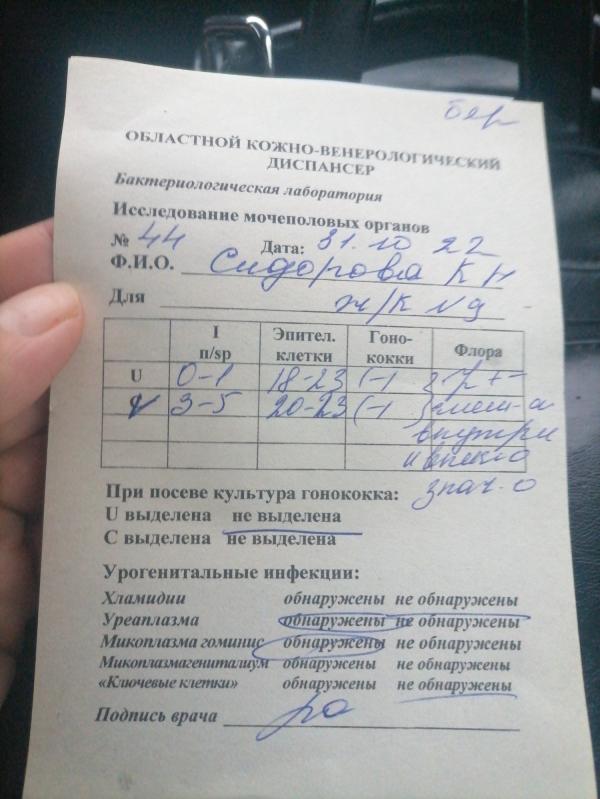 бер
ОБЛАСТНОЙ КОЖНО-ВЕНЕРОЛОГИЧЕСКИЙ
ДИСПАНСЕР
Бактериологическая лаборатория
Исследование мочеполовых органов
№ 44 Дата: 31.10 22
Ф.И.О. Сидорова К Н
Для ж/к №9
I Эпител. Гоно- Флора
п/зр клетки кокки
U 0-1 18-23 (-) гр +-
C 3-5 20-23 (-)
внутри
и внекл
знач.
При посеве культура гонококка:
U выделена не выделена
С выделена не выделена
Урогенитальные инфекции:
Хламидии обнаружены не обнаружены
Уреаплазма обнаружены не обнаружены
Микоплазма гоминис обнаружены не обнаружены
Микоплазмагениталиум обнаружены не обнаружены
«Ключевые клетки» обнаружены не обнаружены
Подпись врача